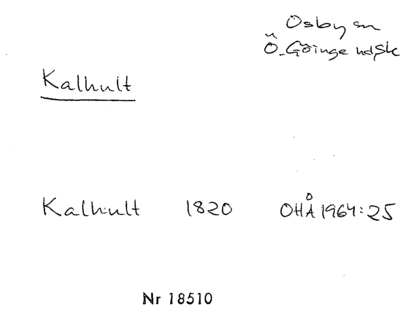 Osby sn
Ö. Göinge hd Sk
Kalhult
Kalhult 1820 OHÅ 1964:25
Nr 18510